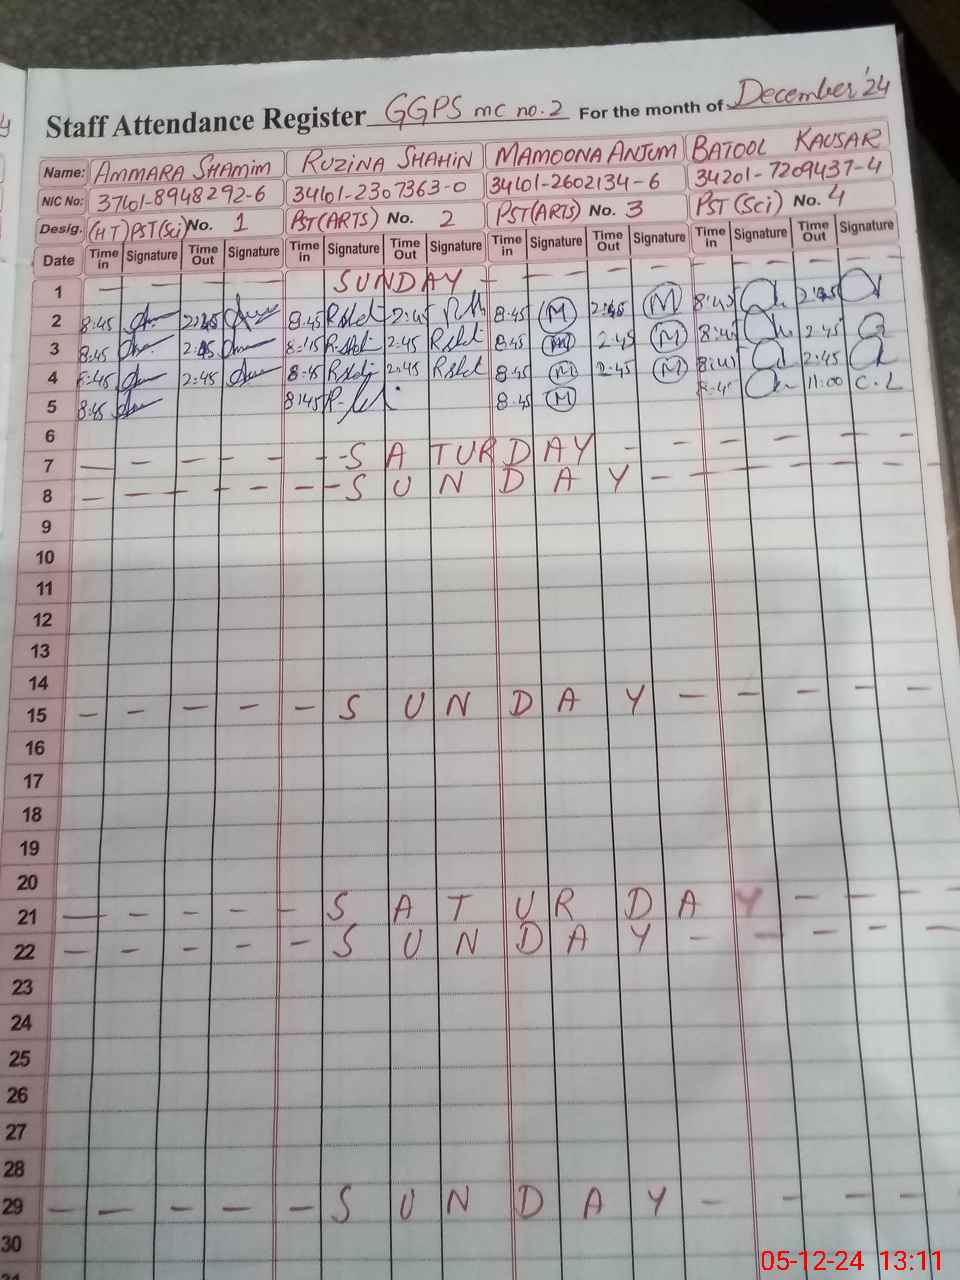 Staff Attendance Register GGPS mc no.2 For the month of December '24
Name: AMMARA SHAMIM RUZINA SHAHIN MAMOONA ANJUM BATOOL KAUSAR
NIC No: 37401-8948292-6 34601-2307363-0 34601-2602134-6 34201-7209437-4
Desig. (HT) PST(Sci) No. 1 PST(ARTS) No. 2 PST(ARTS) No. 3 PST(Sci) No. 4
Date Time in Signature Time Out Signature Time in Signature Time Out Signature Time in Signature Time Out Signature Time in Signature Time Out Signature
1 - - - - - SUNDAY - - - - - - - - -
2 8:45 2:45 8:45 2:45 8:45 M 2:45 M 8:45 2:45
3 8:45 2:45 8:45 2:45 8:45 M 2:45 M 8:45 2:45
4 8:45 2:45 8:45 2:45 8:45 M 2:45 M 8:45 2:45
5 8:45 8:45 8:45 M 8:45 11:00 C.L
6
7 - - - - - - - SATURDAY - - - - - -
8 - - - - - - - SUNDAY - - - - - -
9
10
11
12
13
14
15 - - - - - SUNDAY - - - - -
16
17
18
19
20
21 - - - - - SATURDAY - - - -
22 - - - - - SUNDAY - - - - -
23
24
25
26
27
28
29 - - - - - SUNDAY - - - -
30
05-12-24 13:11